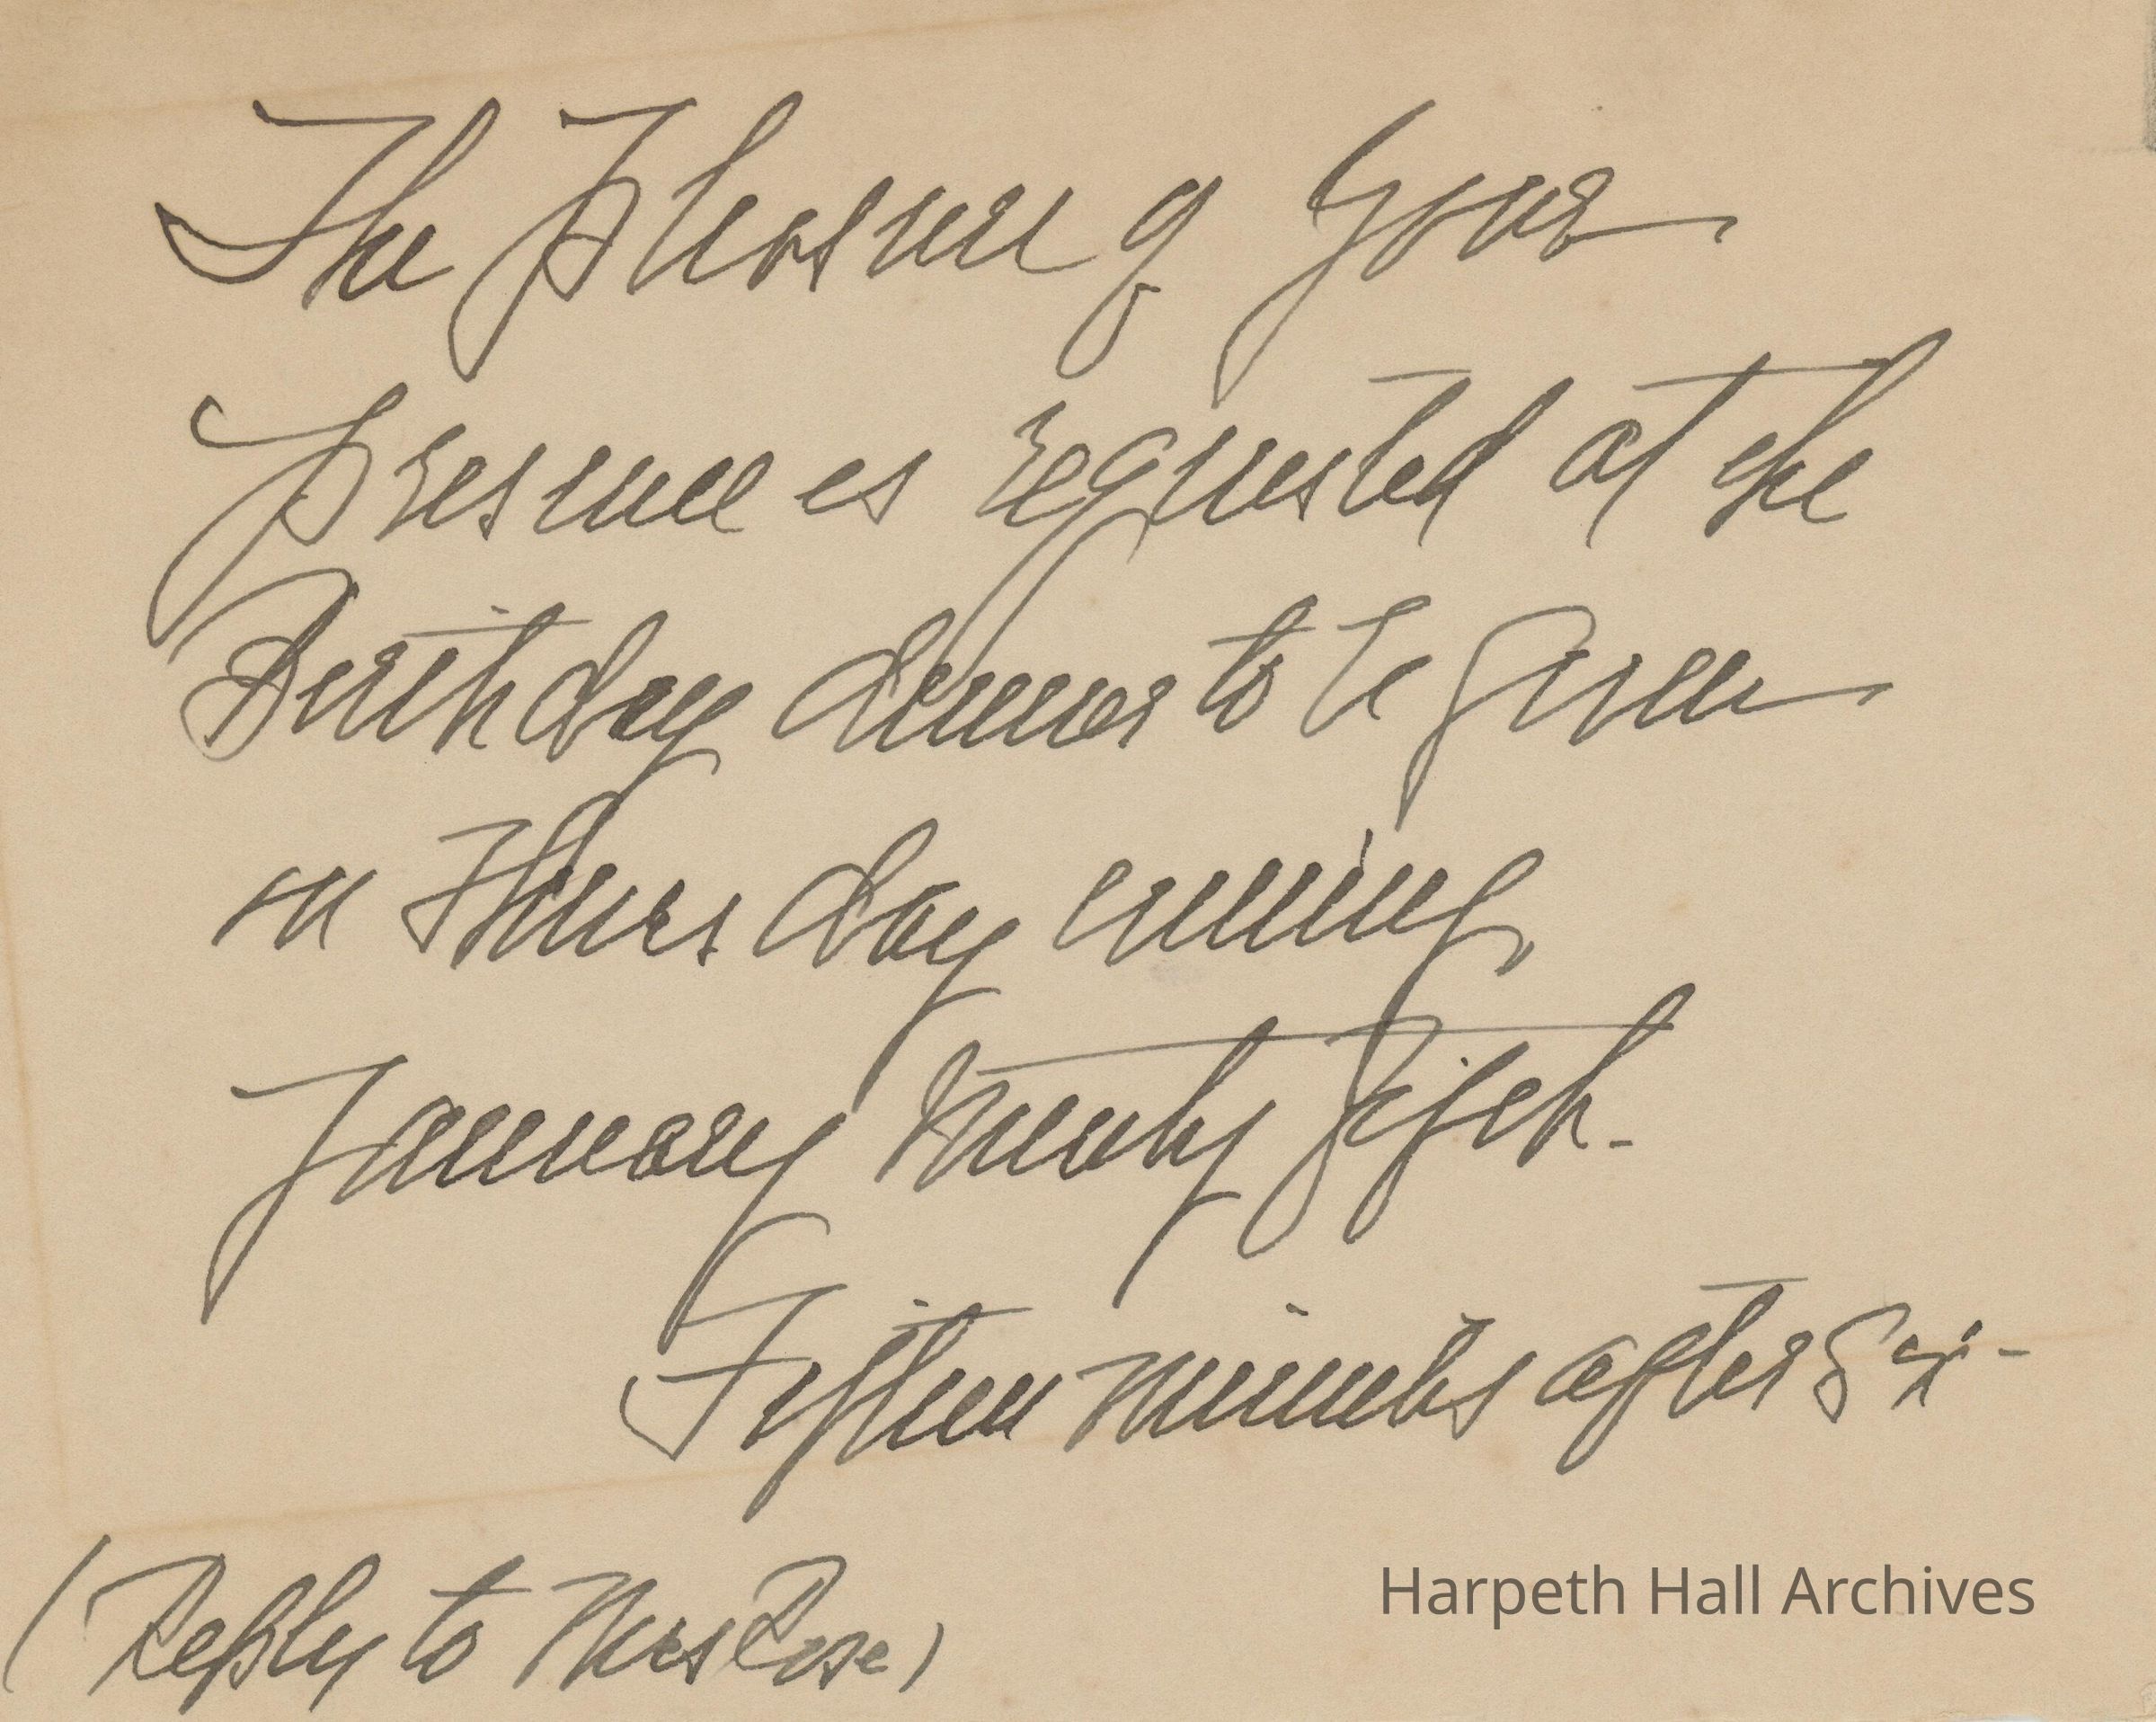 The Pleasure of your
Presence is requested at the
Birthday dinner to be given
on Thursday evening,
January twenty fifth -
Fifteen minutes after six -
(Reply to Mrs Rose)
Harpeth Hall Archives